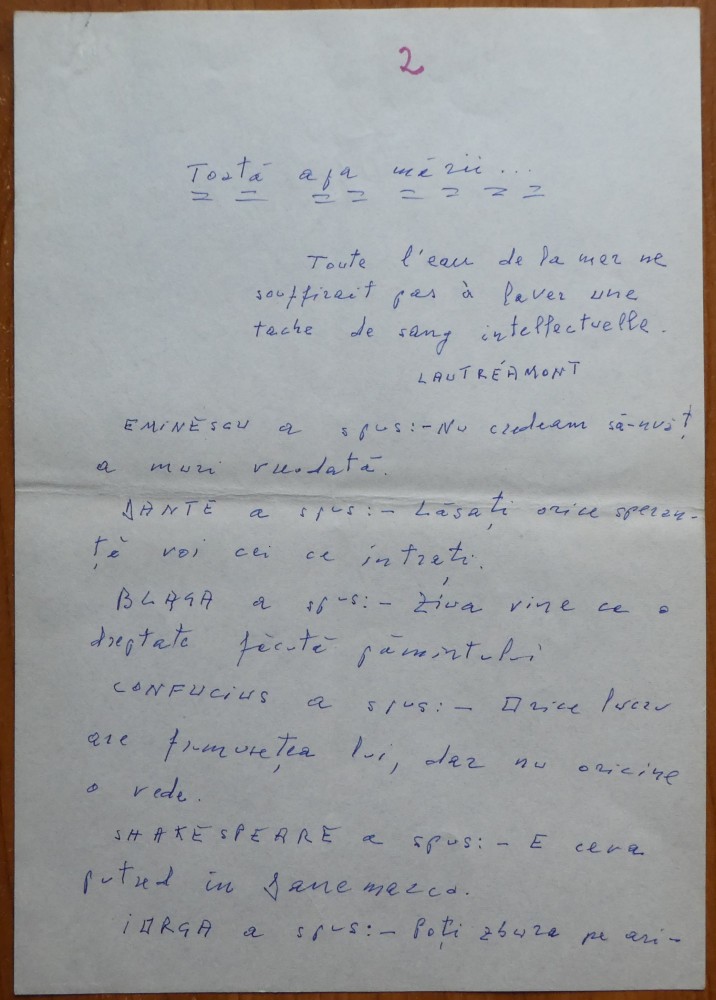 2
Toată apa mării...
Toute l'eau de la mer ne
souffirait pas à laver une
tache de sang intellectuelle.
LAUTRÉAMONT
EMINESCU a spus:-Nu credeam să-nvăț
a muri vreodată.
DANTE a spus:- Lăsați orice speran-
ță voi cei ce intrați.
BLAGA a spus:- Ziua vine ca o
dreptate făcută pămîntului
CONFUCIUS a spus:- Orice lucru
are frumusețea lui, dar nu oricine
o vede.
SHAKESPEARE a spus:- E ceva
putred în Danemarca.
IORGA a spus:- Poți zbura pe ari-